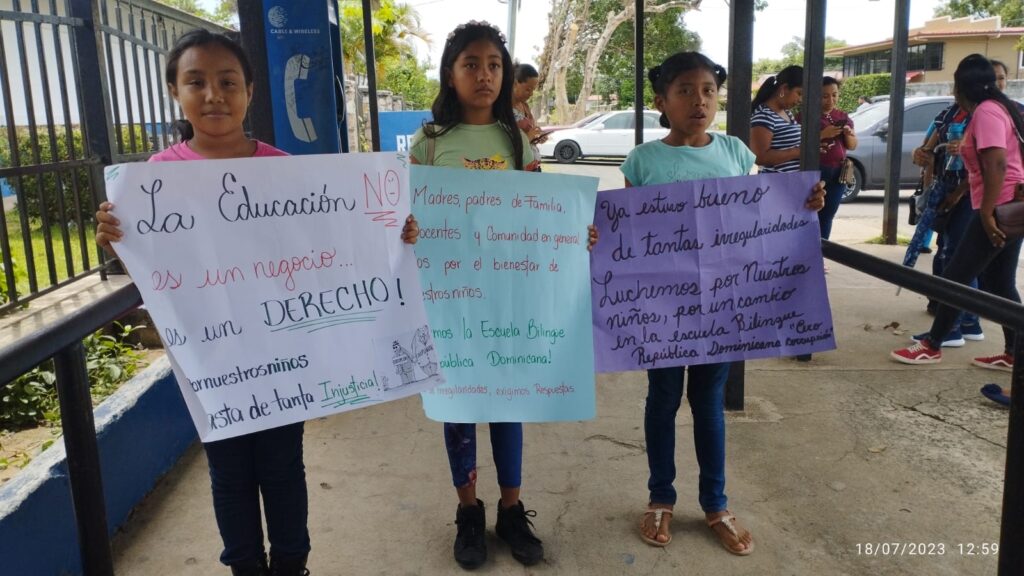 CABLE & WIRELESS
La Educación NO
es un negocio...
es un DERECHO!
nuestros niños
asta de tanta Injusticia!
Madres, padres de Familia,
ocentes y Comunidad en general
os por el bienestar de
estros niños.
mos la Escuela Bilingüe
pública Dominicana!
irregularidades, exigimos Respuestas
Ya estuvo bueno
de tantas irregularidades
Luchemos por Nuestros
niños, por un cambio
en la escuela Bilingüe
República Dominicana "Cero
corrupción"
18/07/2023 12:59